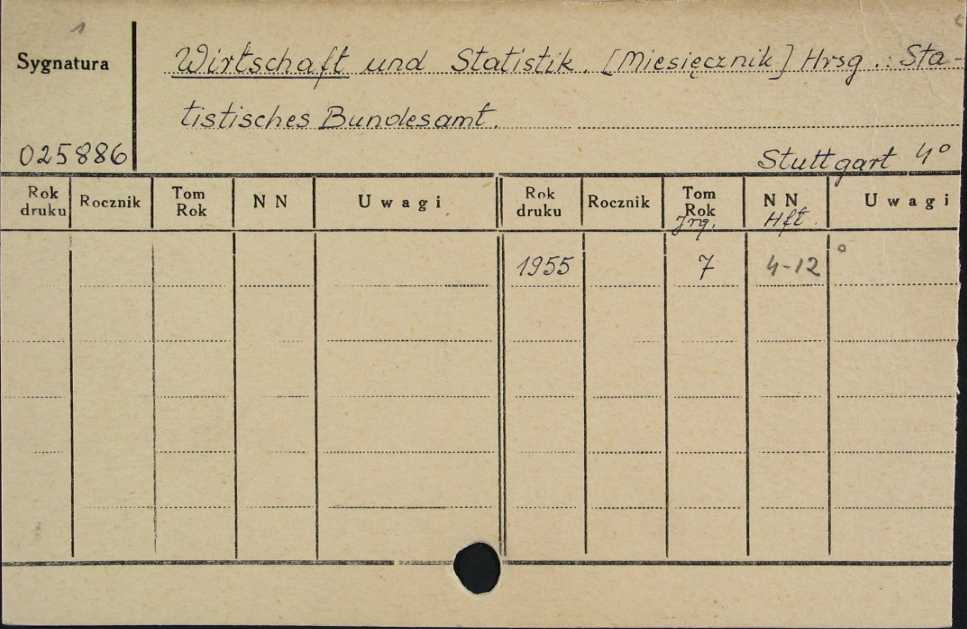 1
Sygnatura
Wirtschaft und Statistik. [Miesięcznik] Hrsg.: Sta-
tistisches Bundesamt.
025886
Stuttgart 4°
Rok druku Rocznik Tom Rok N N Uwagi Rok druku Rocznik Tom Rok Jrg. N N Hft. Uwagi
1955 7 4-12 °